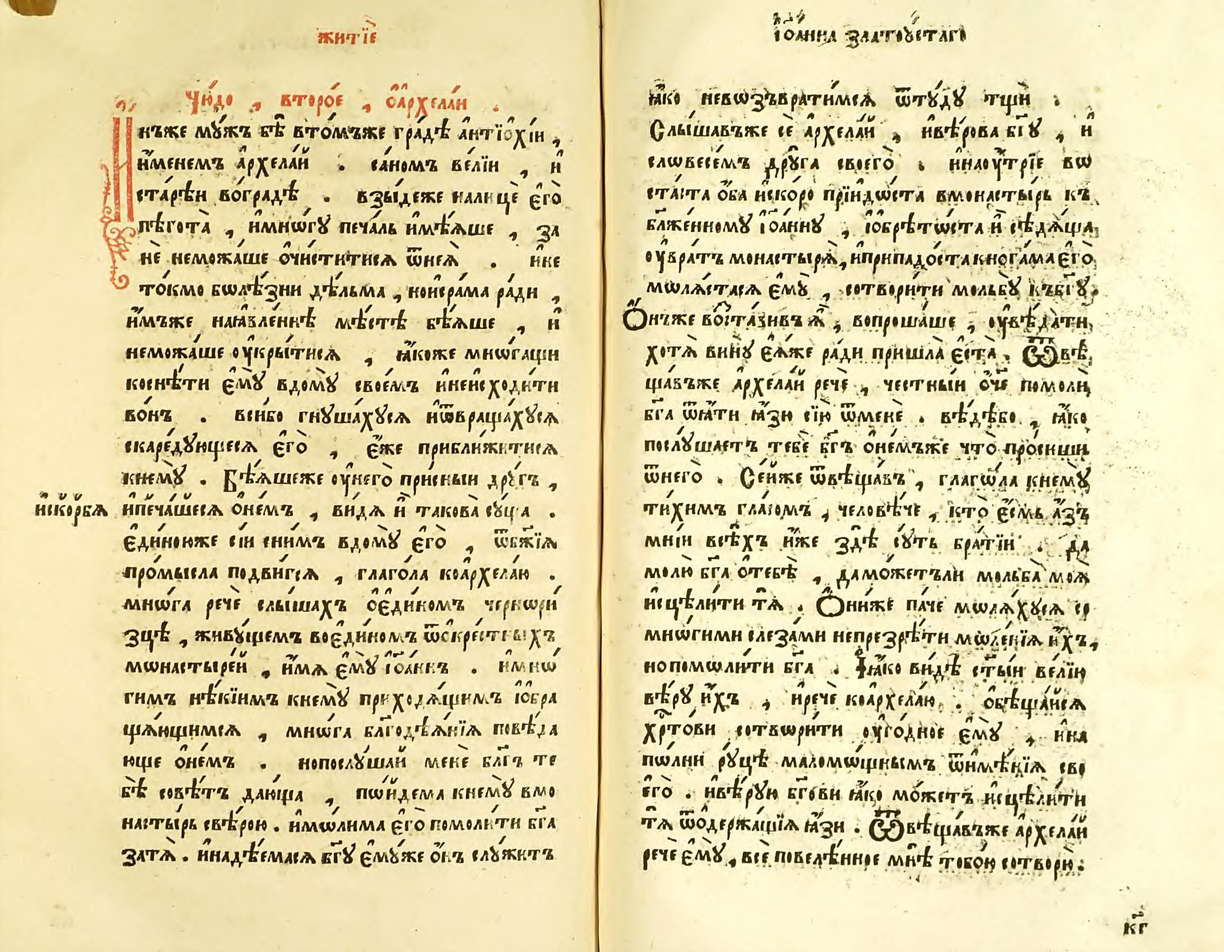 житїе
Чю́до , второ́е , ѽархела́и .
Инъже му́жъ бѣ̀ вто́мъже гра́дѣ а҆нтїо́хїи ,
и҆́менемъ а҆рхела́й . са́номъ ве́лїи , и҆
ста́рѣи вогра́дѣ . взы́деже налицѐ є҆го̀
пѣ́гота̀ , и҆мно́гꙋ печа́ль и҆мѣ́ѧше , за
нѐ немо́жаше ѡ҆чи́ститисѧ ѿнеѧ̀ . и҆не
то́кмо бѡлѣ́зни дѣ́льма , нои҆сра́ма ра́ди ,
и҆́мъже наꙗ҆влѐннѣ мѣ́стѣ бѣ́ѧше , и҆
немо́жаше ᲂу҆кры́тисѧ , ꙗ҆́коже мнѡ́гащи
косне́ти є҆мꙋ̀ вдомꙋ̀ свое́мъ и҆неисходи́ти
во́нъ . вси́бо гнꙋша́хꙋсѧ и҆ѿвраща́хꙋсѧ
скаре́дꙋющесѧ є҆го̀ , є҆́же прибли́житисѧ
кнемꙋ̀ . Бѣ́ѧшеже ᲂу҆него̀ при́сныи дрꙋ́гъ ,
и҆скорбѧ̀
и҆печа́шесѧ ѻ҆не́мъ , ви́дѧ и҆̀ такова̀ сꙋ́ща .
є҆ди́ноюже сїи сни́мъ вдомꙋ̀ є҆го̀ , ѿбж҃їѧ
про́мысла подви́гсѧ , глаго́ла коа҆рхела́ю .
мнѡ́га речѐ слы́шахъ ѻ҆є҆ди́номъ чернори́
зцѣ , живꙋ́щемъ воє҆ди́номъ ѿскре́стныхъ
мѡнастыре́й , и҆́мѧ є҆мꙋ̀ і҆ѻ҆а́ннъ . и҆мнѡ́
гимъ нѣ́кїимъ кнемꙋ̀ приходѧ́щимъ і҆ѻ҆бра
щѧ́ющимсѧ , мнѡ́га бл҃годѣѧ̑нїѧ повѣ́да
юще ѻ҆не́мъ . нопослꙋ́шай менѐ бл҃гъ те
бѣ̀ совѣ́тъ даю́ща , по́йдема кнемꙋ̀ вмо
насты́рь свѣ́рою . и҆мо́лима є҆го̀ помоли́ти бг҃а
затѧ̀ . и҆надѣ́емасѧ бг҃ꙋ є҆мꙋ́же ѻ҆́нъ слꙋ́житъ
і҆ѻ҆а́нна златоꙋ́стаго
ꙗ҆́ко невѡзъврати́мсѧ ѿтꙋ́дꙋ тщѝ .
Слы́шавъже сѐ а҆рхела́й , и҆вѣ́рова бг҃ꙋ , и҆
словесе́мъ дрꙋ́га своего̀ . и҆наᲂу҆́трїе во
ста́ста ѻ҆́ба и҆ско́ро прїидо́ста вмонасты́рь къ
бл҃же́нномꙋ і҆ѻ҆а́ннꙋ , і҆ѻ҆брѣто́ста и҆̀ сѣдѧ́ща
ᲂу҆вра́тъ монастырѧ̀ , и҆припадо́ста кнога́ма є҆го̀
молѧ́стасѧ є҆мꙋ̀ , сотвори́ти мольбꙋ̀ къбг҃ꙋ .
Ѻ҆́нъже возста́вивъ ѧ҆̀ , вопроша́ше , ᲂу҆вѣ́дати
хотѧ̀ винꙋ̀ є҆ѧ́же ра́ди пришла̀ є҆ста̀ . Ѿвѣ
ща́въже а҆рхела́й речѐ , честны́и ѻ҆́ч҃е помолѝ
бг҃а ѿѧ҆́ти ꙗ҆́зю сїю̀ ѿменѐ . вѣ́дѣбо , ꙗ҆́ко
послꙋ́шаетъ тебѐ бг҃ъ ѻ҆не́мъже что̀ про́сиши
ѿнего̀ . Се́йже ѿвѣща́въ , глаго́ла кнемꙋ̀
ти́химъ гла́сомъ , человѣ́че , кто̀ є҆́смь а҆́зъ
мнїи всѣ́хъ и҆́же здѣ̀ сꙋ́ть бра́тїи . да
молю̀ бг҃а ѻ҆тебѣ̀ , даможе́тъли мольба̀ моѧ̀
и҆сцѣли́ти тѧ̀ . Ѻ҆ни́же па́че молѧ́хꙋсѧ со
мнѡ́гими слеза́ми непрезрѣ́ти моле́нїѧ и҆́хъ ,
нопомоли́ти бг҃а . Ꙗ҆́ко ви́дѣ ст҃ы́и ве́лїю
вѣ́рꙋ и҆́хъ , и҆речѐ коа҆рхела́ю . ѻ҆бѣща́исѧ
хрⷭ҇то́ви сотвори́ти ᲂу҆го́дное є҆мꙋ̀ , и҆на
по́лни рꙋ́цѣ маломо́щнымъ ѿи҆мѣ́нїѧ сво
є҆го̀ . и҆вѣ́рꙋи бг҃ови ꙗ҆́ко мо́жетъ и҆сцѣли́ти
тѧ̀ ѿѻ҆держа́щїѧ ꙗ҆́зи . Ѿвѣща́въже а҆рхела́й
речѐ є҆мꙋ̀ , всѐ повелѣ́нное мнѣ̀ тобо́ю сотворю̀ .
кг҃